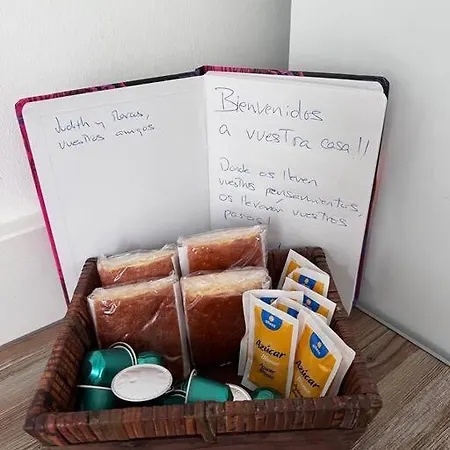 Judith y Marcos,
vuestros amigos
Bienvenidos
a vuestra casa!!
Donde os lleven
vuestros pensamientos,
os llevarán vuestros
pasos!
Azúcar
Azúcar